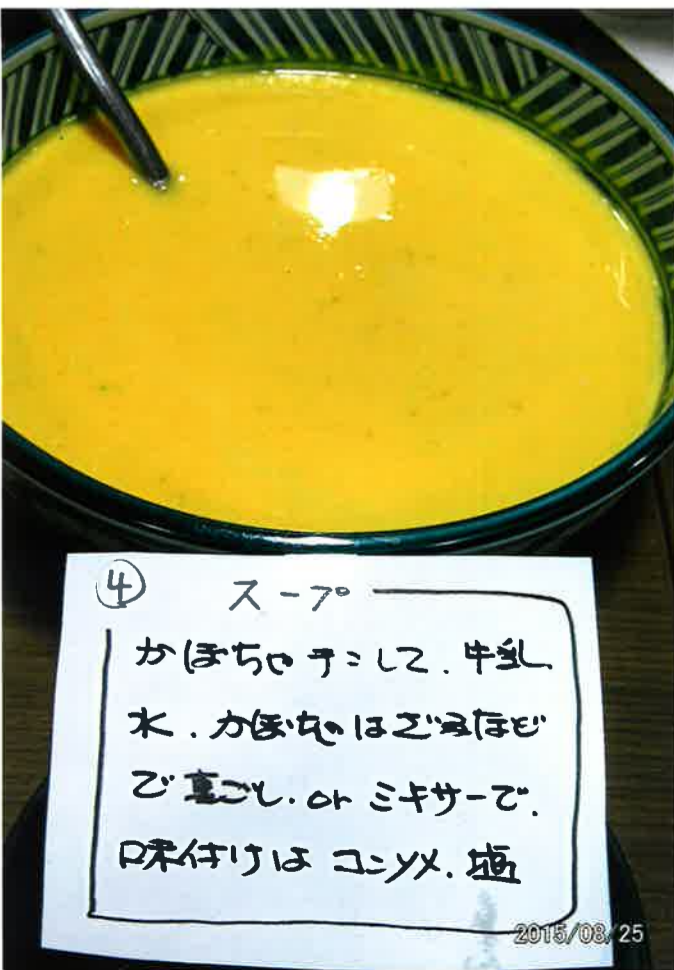 ④ スープ
かぼちゃチンして、牛乳
水、かぼちゃはざるなど
で裏ごし、or ミキサーで、
味付けは コンソメ、塩
2015/08/25